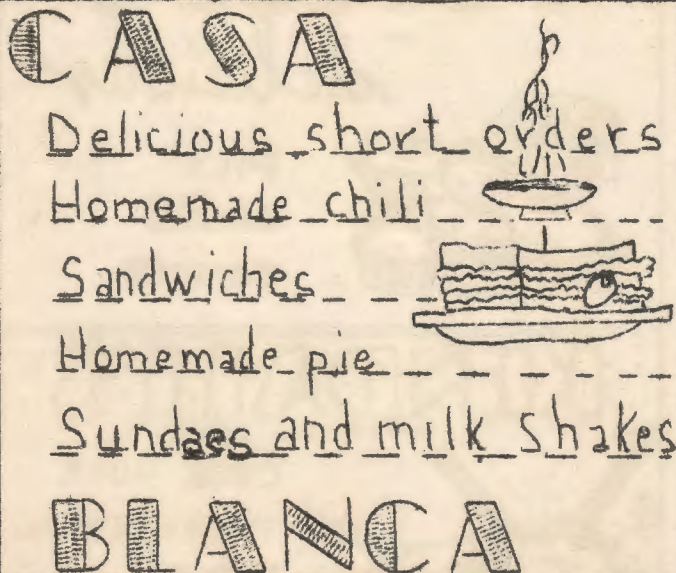 CASA
Delicious short orders
Homemade chili
Sandwiches
Homemade pie
Sundaes and milk shakes
BLANCA